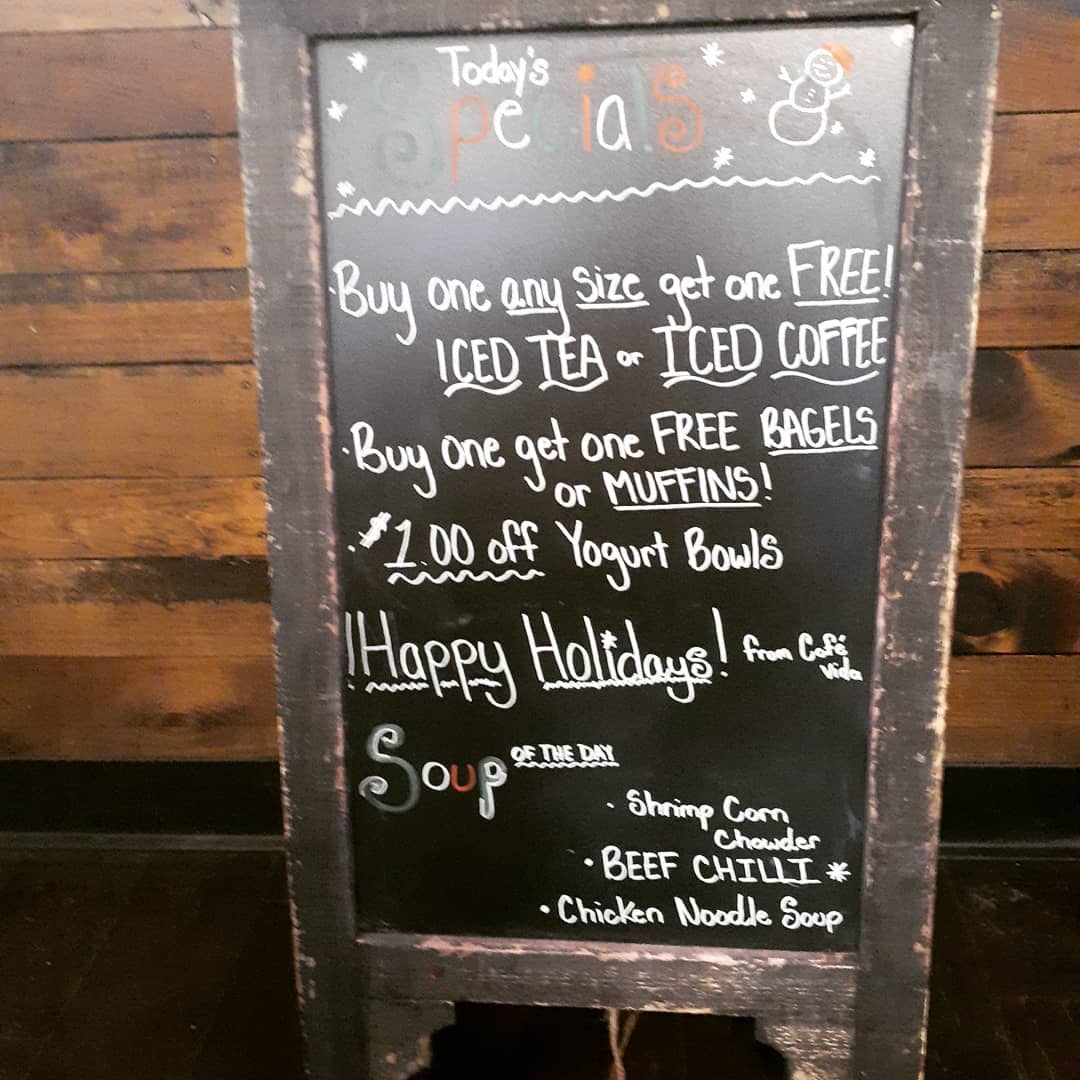 Today's
Specials
· Buy one any size get one FREE!
ICED TEA or ICED COFFEE
· Buy one get one FREE BAGELS
or MUFFINS!
· $1.00 off Yogurt Bowls
¡Happy Holidays! from Café
Vida
Soup OF THE DAY
· Shrimp Corn
Chowder
· BEEF CHILLI *
· Chicken Noodle Soup